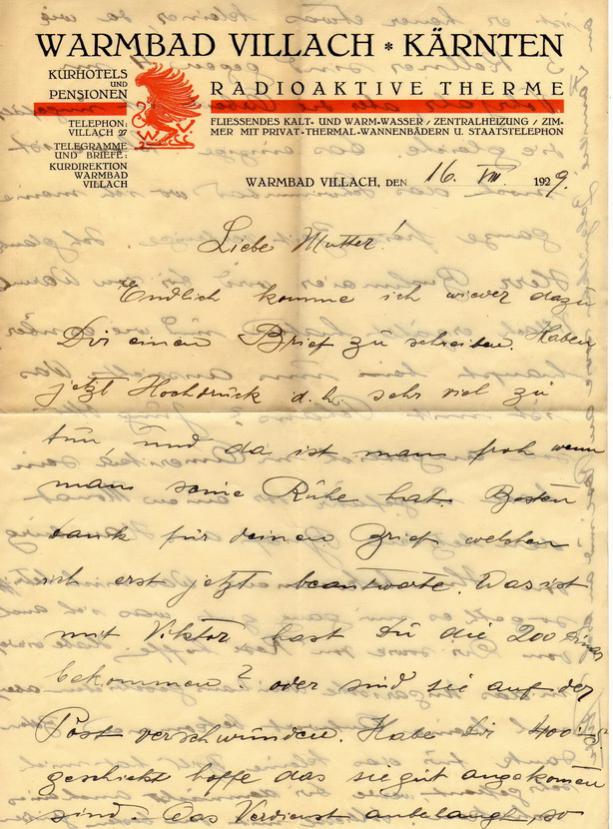 WARMBAD VILLACH * KÄRNTEN
KURHOTELS
UND
PENSIONEN
RADIOAKTIVE THERME
TELEPHON:
VILLACH 27
TELEGRAMME
UND BRIEFE:
KURDIREKTION
WARMBAD
VILLACH
FLIESSENDES KALT- UND WARM-WASSER / ZENTRALHEIZUNG / ZIM-
MER MIT PRIVAT-THERMAL-WANNENBÄDERN U. STAATSTELEPHON
WARMBAD VILLACH, DEN 16. VIII. 1929.
Liebe Mutter!
Endlich komme ich wieder dazu
Dir einen Brief zu schreiben. Haben
jetzt Hochdruck d.h. sehr viel zu
tun und da ist man froh wenn
man seine Ruhe hat. Besten
dank für deinen Brief welchen
ich erst jetzt beantworte. Was ist
mit Viktor hast du die 200
bekommen? oder sind sie auf der
Post verschwunden. Habe Dir 400
geschickt hoffe das sie gut angekomen
sind. Das Verdienst anbelangt, so